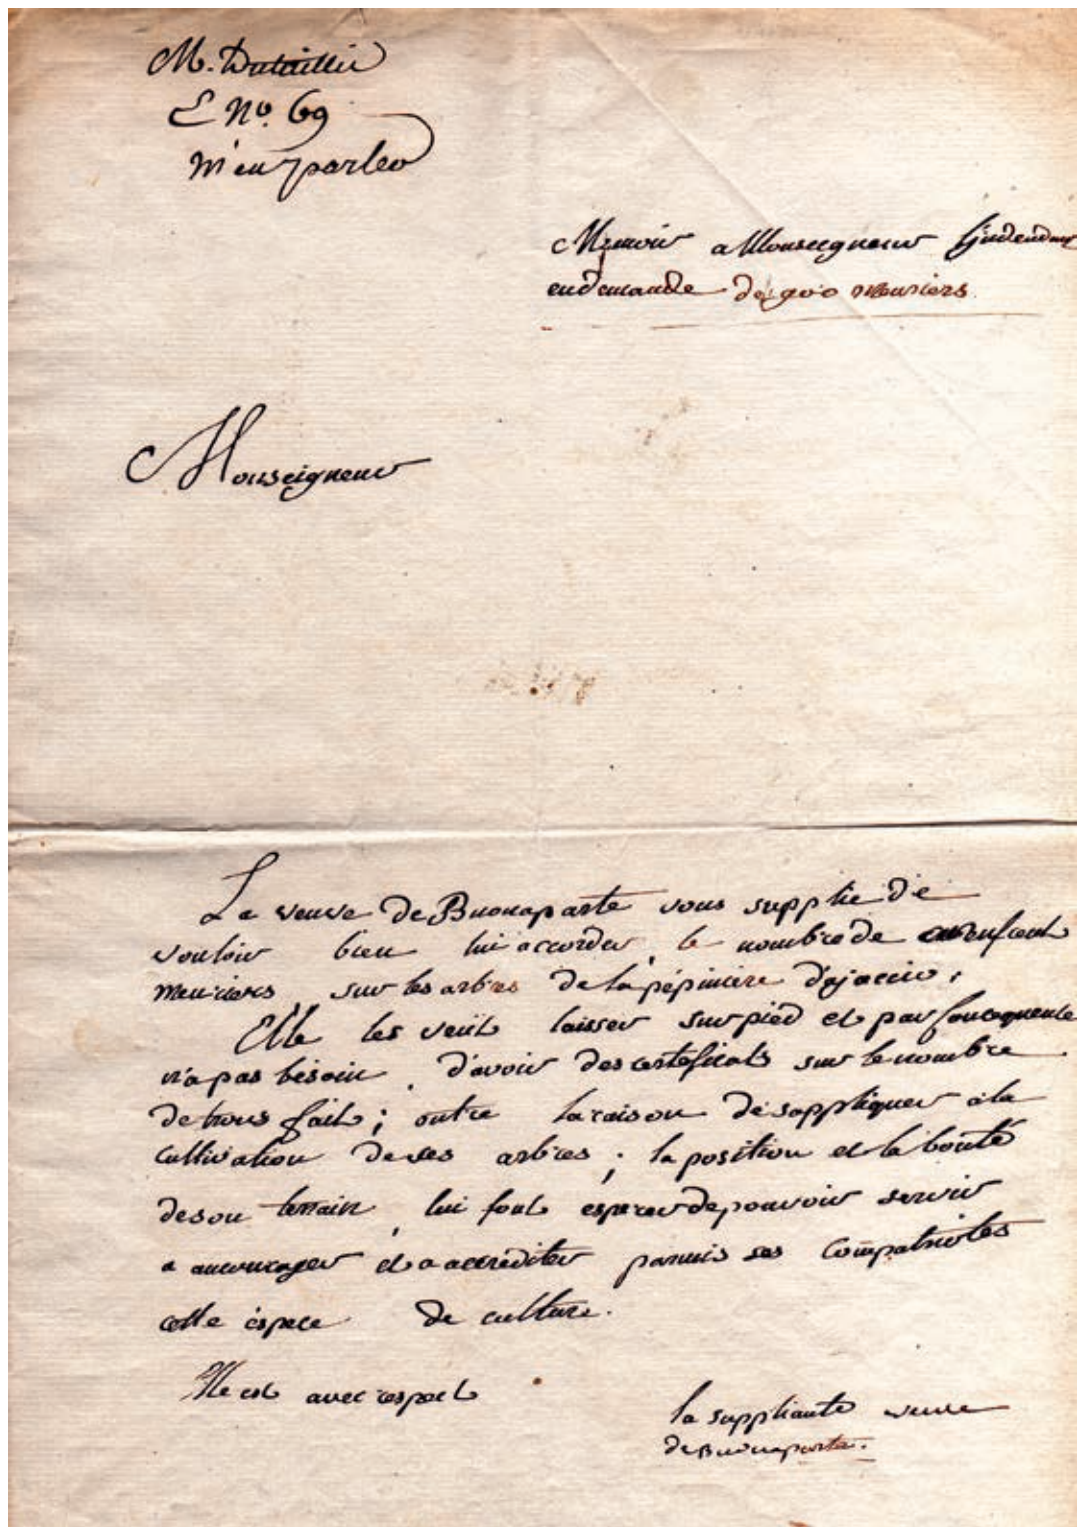 M. Dutaillis
E Nº. 69
m'en parler
Memoir a Monseigneur l'jntendant
en demande de 900 Meuriers
Monseigneur
La veuve de Buonaparte vous supplie de
vouloir bien lui accorder, le nombre de
meuriers, sur les arbres de la pépiniere d'ajaccio;
Elle les veut laisser sur pied et par consequente
n'a pas besoin, d'avoir des certeficats sur le nombre
de trous fait; outre la raison de s'appliquer a la
cultivation de ses arbres; la position et la bonté
de son terrain, lui font esperer de pouvoir servir
a encourager et a accrediter parmis ses compatriotes
cette éspece de culture.
Elle est avec respect
la suppliante veuve
de Buonaparte.